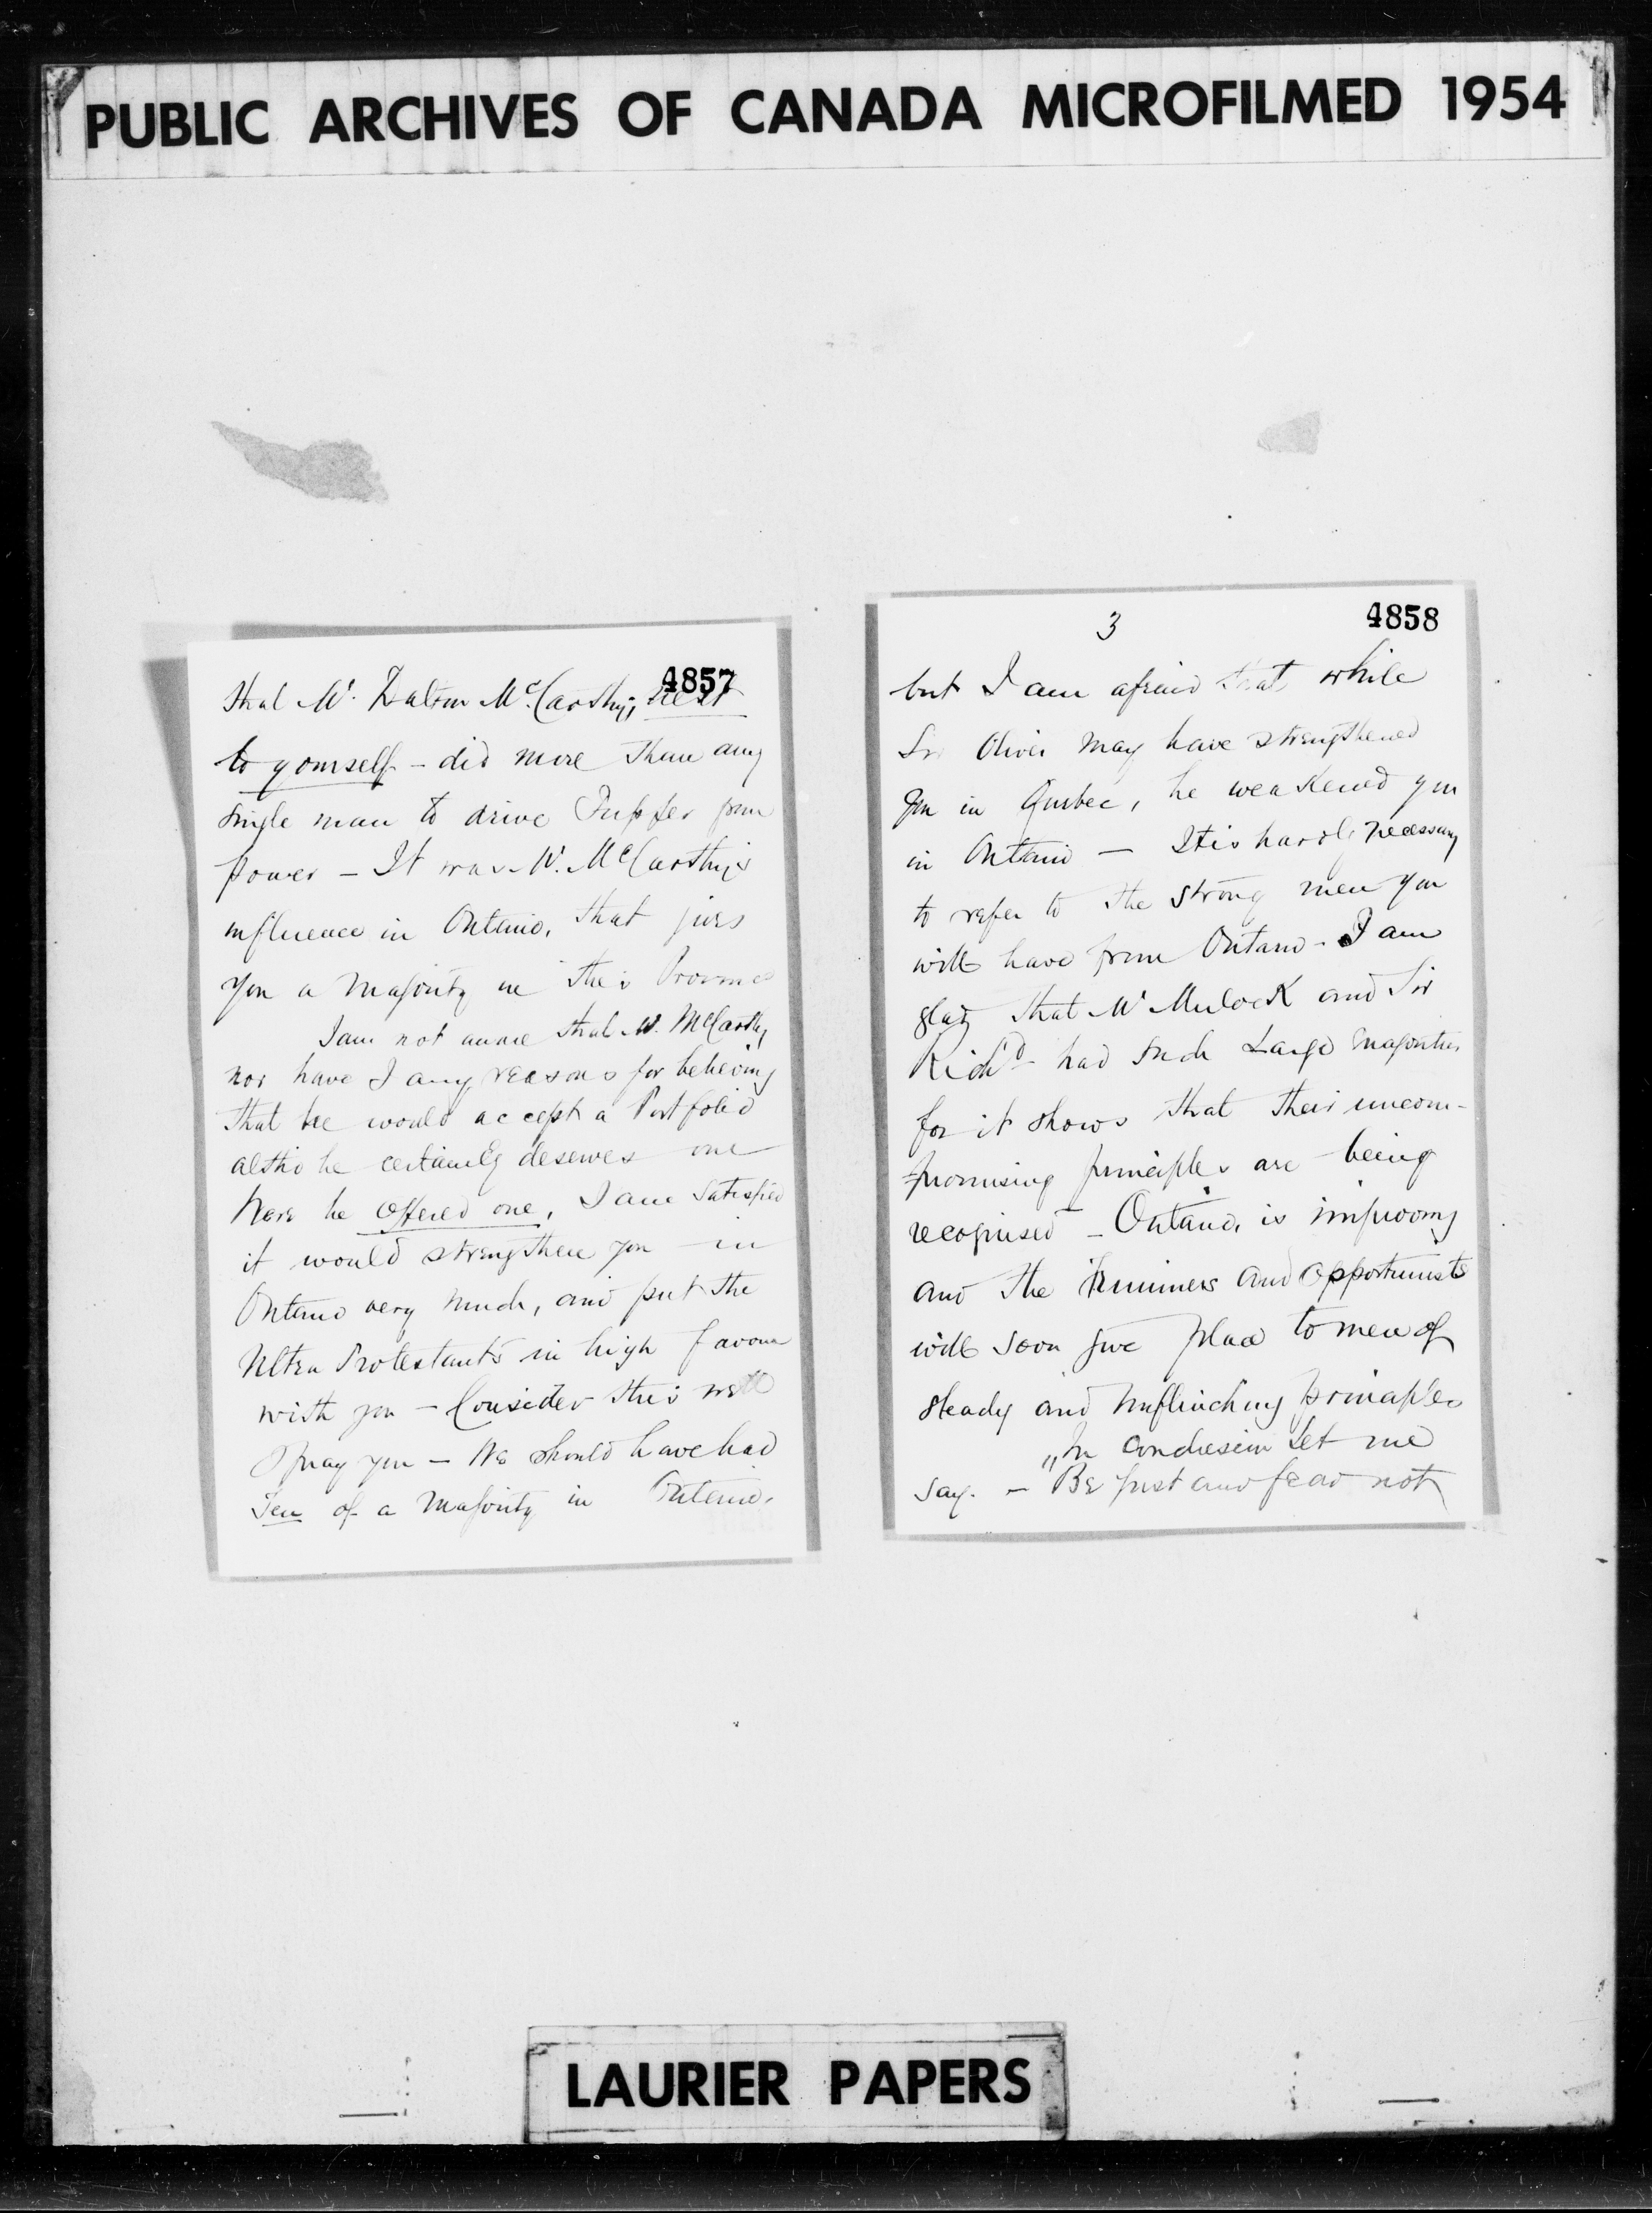 PUBLIC ARCHIVES OF CANADA MICROFILMED 1954
4857
that Mr. Dalton McCarthy, next
to yourself - did more than any
single man to drive Tupper from
power - It was Mr. McCarthy's
influence in Ontario, that gives
you a majority in this Province
I am not aware that Mr. McCarthy
nor have I any reasons for believing
that he would accept a Portfolio
altho he certainly deserves one
Were he offered one, I am satisfied
it would strengthen you in
Ontario very much, and put the
Ultra Protestants in high favour
with you - Consider this well
I pray you - We should have had
Ten of a majority in Ontario.
3
4858
but I am afraid that while
Sir Oliver may have strengthened
you in Quebec, he weakened you
in Ontario - It is hardly necessary
to refer to the strong men you
will have from Ontario - I am
glad that Mr Mulock and Sir
Richd had such Large majorities
for it shows that their uncom-
promising principles are being
recognised - Ontario, is improving
and the trimmers and opportunists
will soon give place to men of
steady and unflinching principles
"In conclusion let me
say. - Be just and fear not
LAURIER PAPERS